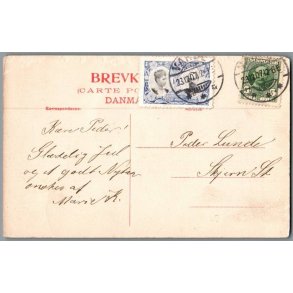 BREVK
(CARTE PO
DANMA
Korrespondance:
Kære Peder!
Glædelig Jul
og et godt Nytaar
ønskes af
Marie K.
Peder Lunde
Skjern St.